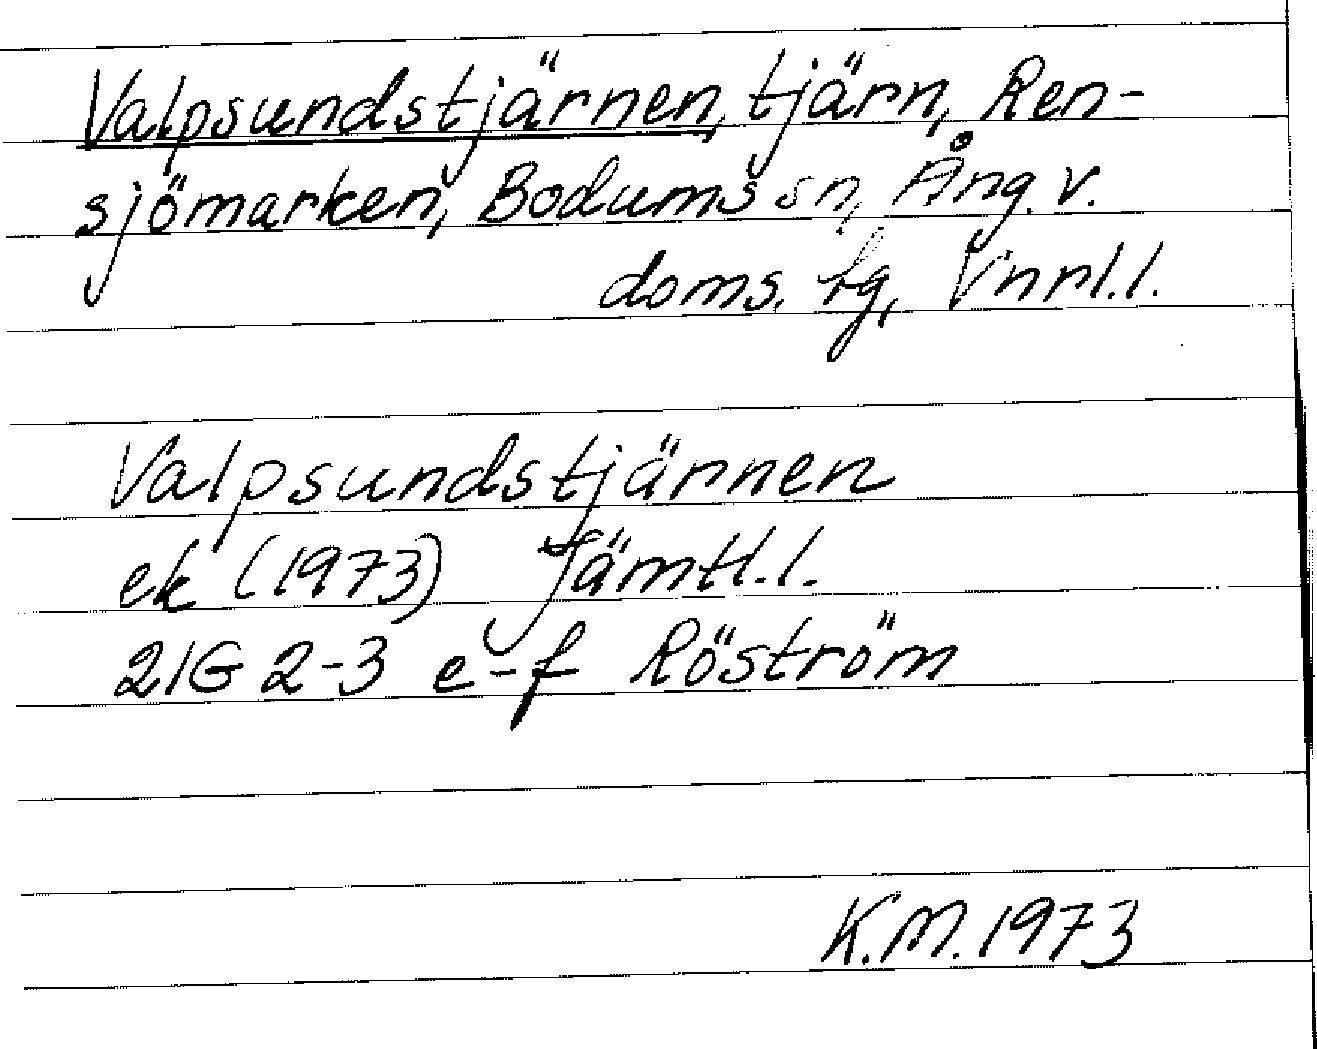 Valpsundstjärnen, tjärn, Ren-
sjömarken, Bodums sn, Ång. v.
doms. tg, Vnrl.l.
Valpsundstjärnen
ek (1973) Jämtl.l.
21G 2-3 e-f Röström
K.M. 1973